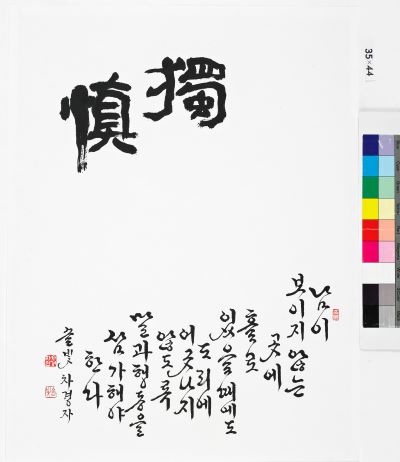 愼獨
남이
보이지 않는
곳에
홀로
있을 때에도
도리에
어긋나지
않도록
말과 행동을
삼가해야
한다
글빛 차경자
35×44